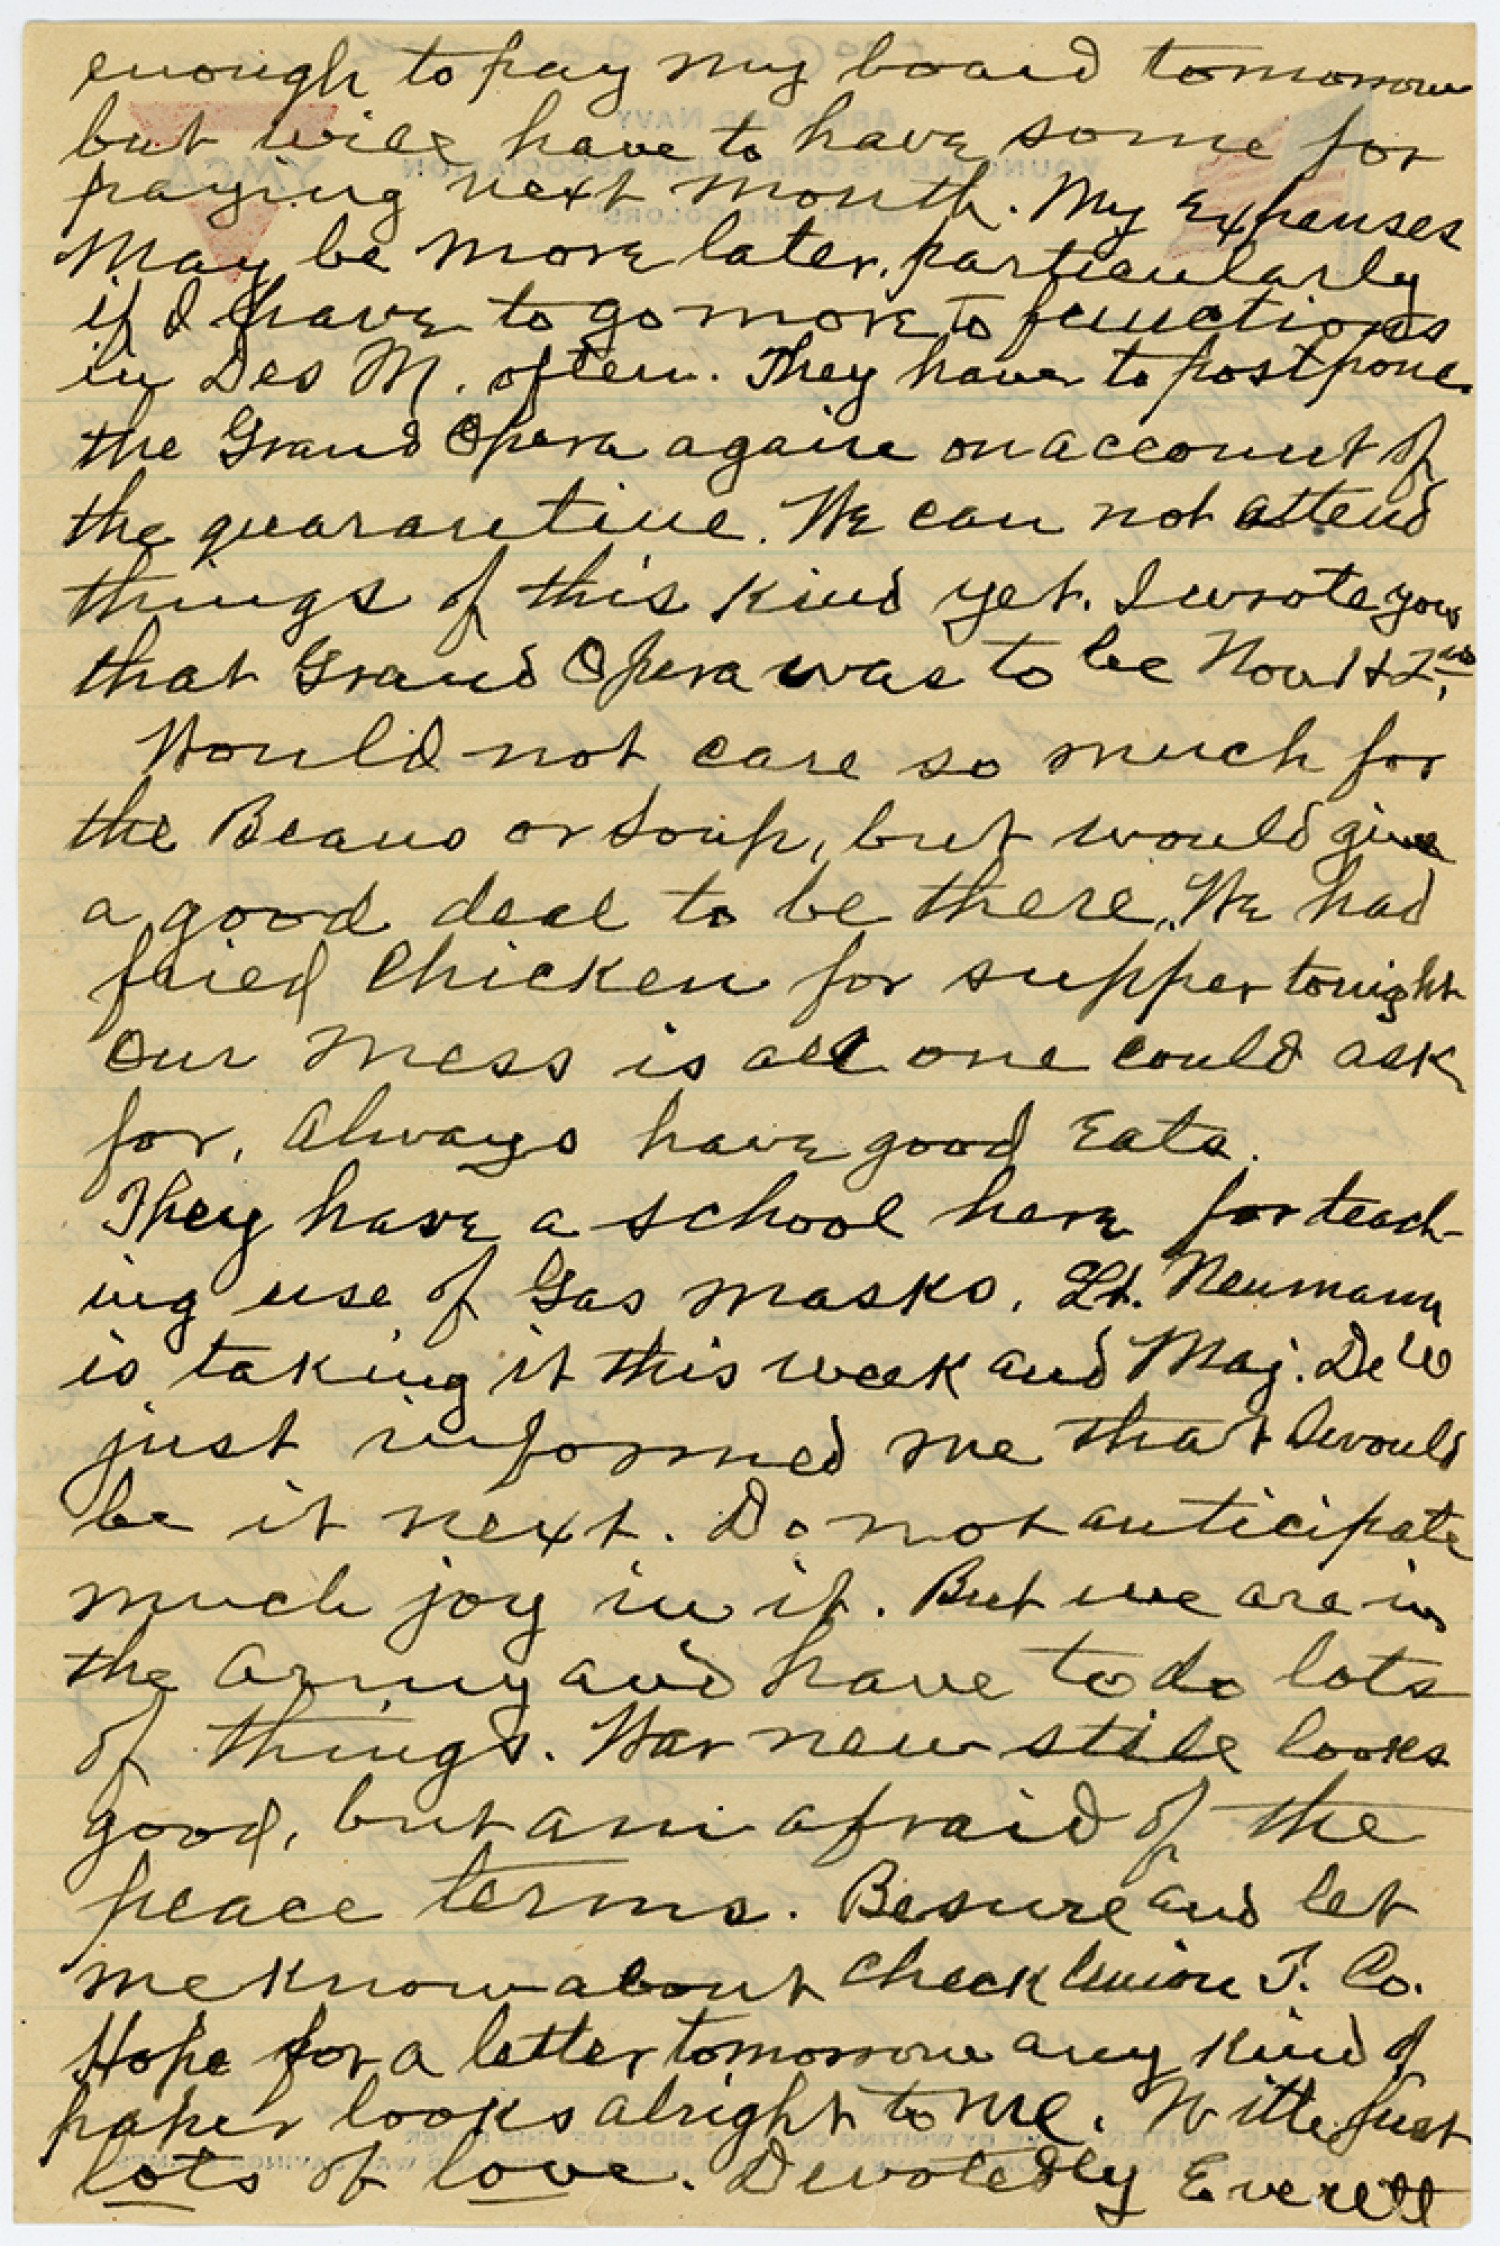 enough to pay my board tomorrow
but will have to have some for
paying next month. My Expenses
May be more later, particularly
if I have to go more to functions
in Des M. often. They have to postpone
the Grand Opera again on account of
the quarantine. We can not attend
things of this kind yet. I wrote you
that Grand Opera was to be Nov 1 & 2nd.
Would not care so much for
the Beans or Soup, but would give
a good deal to be there. We had
fried Chicken for supper tonight
Our Mess is all one could ask
for, Always have good Eats.
They have a school here for teach-
ing use of Gas masks. Lt. Neumann
is taking it this week and Maj. De W
just informed me that I would
be it next. Do not anticipate
much joy in it. But we are in
the army and have to do lots
of things. War new still looks
good, but am afraid of the
peace terms. Be sure and let
me know about Check Union T. Co.
Hope for a letter tomorrow any kind of
paper looks alright to me. With just
lots of love. Devotedly Everett
YMCA
ARMY AND NAVY
YOUNG MEN'S CHRISTIAN ASSOCIATION
"WITH THE COLORS"